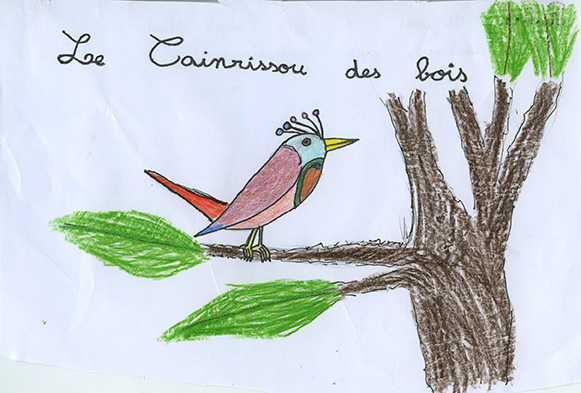 Le Cainrissou des bois